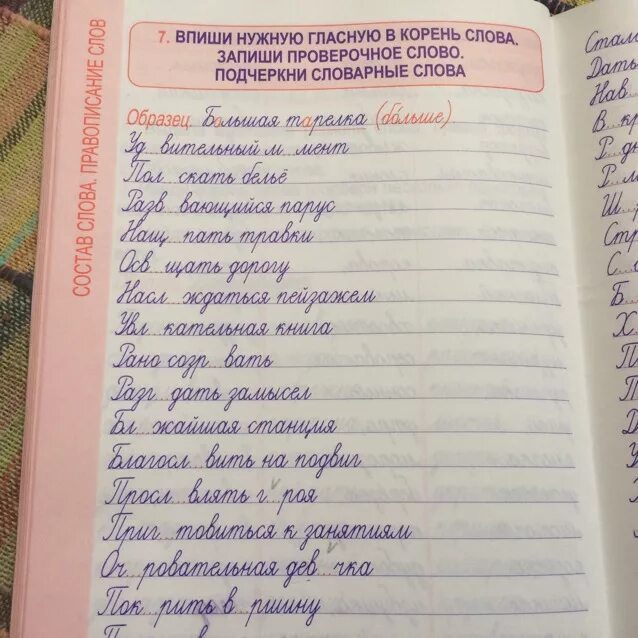 СОСТАВ СЛОВА. ПРАВОПИСАНИЕ СЛОВ
7. ВПИШИ НУЖНУЮ ГЛАСНУЮ В КОРЕНЬ СЛОВА.
ЗАПИШИ ПРОВЕРОЧНОЕ СЛОВО.
ПОДЧЕРКНИ СЛОВАРНЫЕ СЛОВА
Образец. Большая тарелка (больше)
Уд...вительный м...мент
Пол...скать бельё
Разв...вающийся парус
Нащ...пать травки
Осв...щать дорогу
Насл...ждаться пейзажем
Увл...кательная книга
Рано созр...вать
Разг...дать замысел
Бл...жайшая станция
Благосл...вить на подвиг
Просл...влять г...роя
Приг...товиться к занятиям
Оч...ровательная дев...чка
Пок...рить в...ршину
Дать
Нав
В...кр
Р...дн
Ш...
Стр
С...
Б...
Х...
П
П